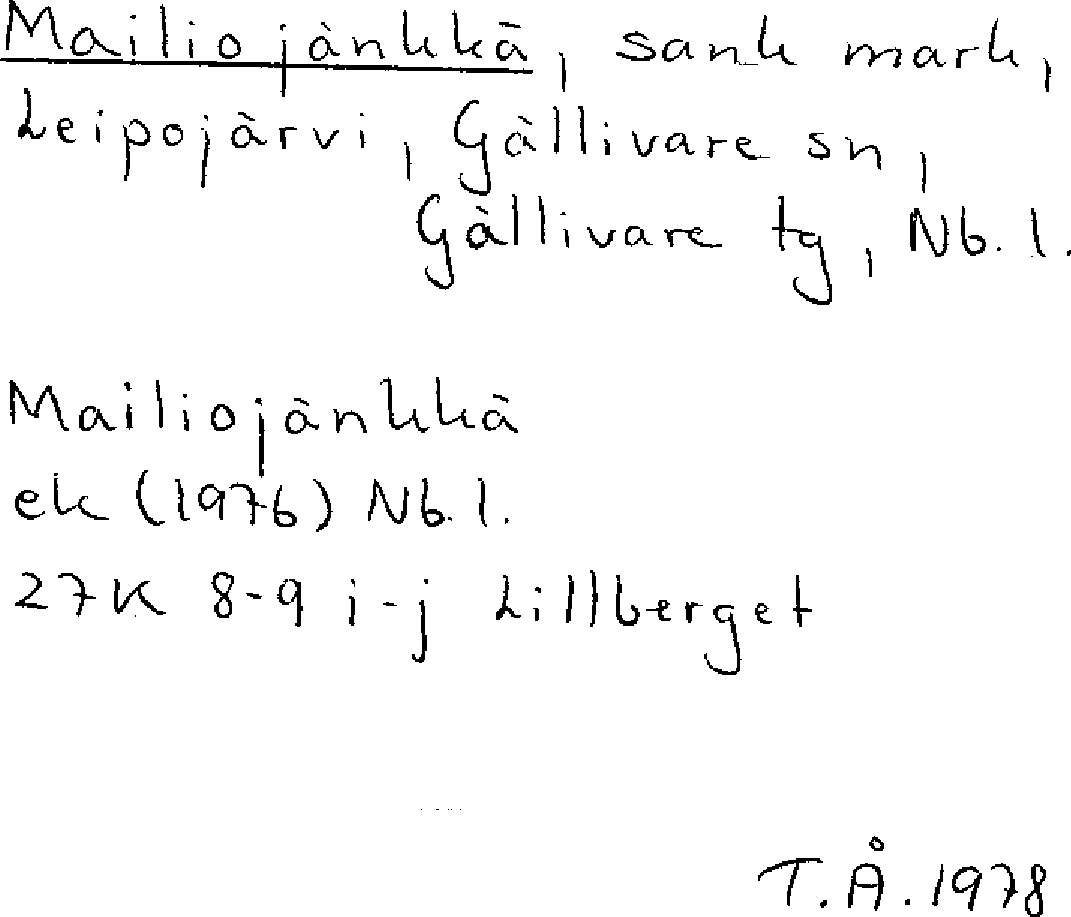 Mailiojänkkä, sank mark,
Leipojärvi, Gällivare sn,
Gällivare tg, Nb. l.
Mailiojänkkä
ek (1976) Nb. l.
27K 8-9 i-j Lillberget
T.Å. 1978